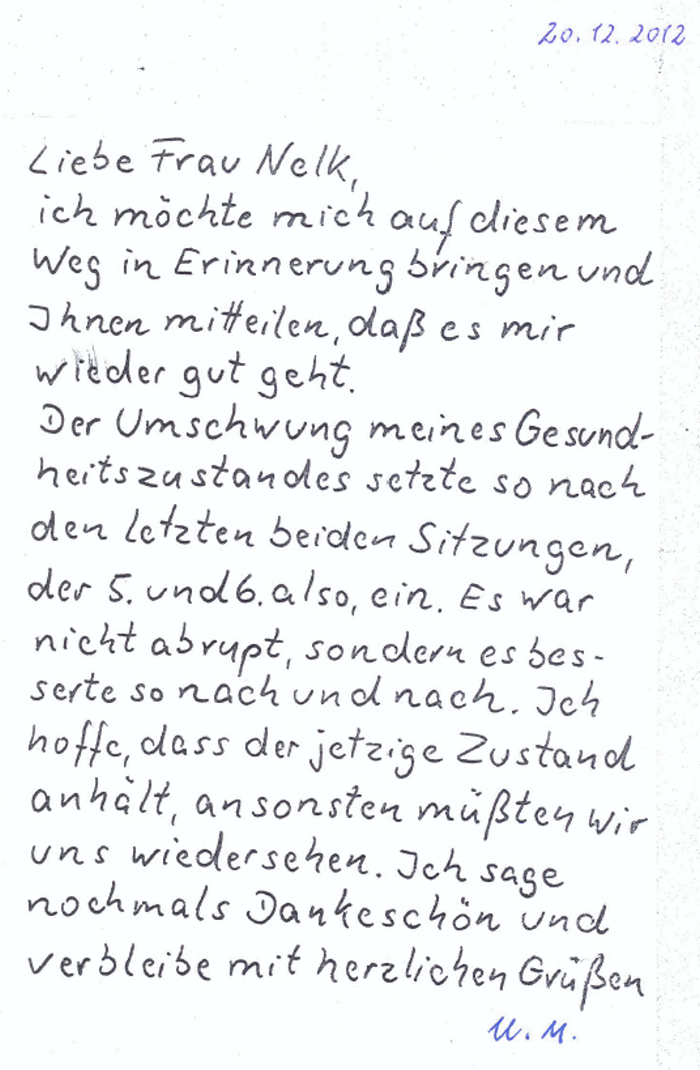 20.12.2012
Liebe Frau Nelk,
ich möchte mich auf diesem
Weg in Erinnerung bringen und
Ihnen mitteilen, daß es mir
wieder gut geht.
Der Umschwung meines Gesund-
heitszustandes setzte so nach
den letzten beiden Sitzungen,
der 5. und 6. also, ein. Es war
nicht abrupt, sondern es bes-
serte so nach und nach. Ich
hoffe, dass der jetzige Zustand
anhält, ansonsten müßten wir
uns wiedersehen. Ich sage
nochmals Dankeschön und
verbleibe mit herzlichen Grüßen
U. M.